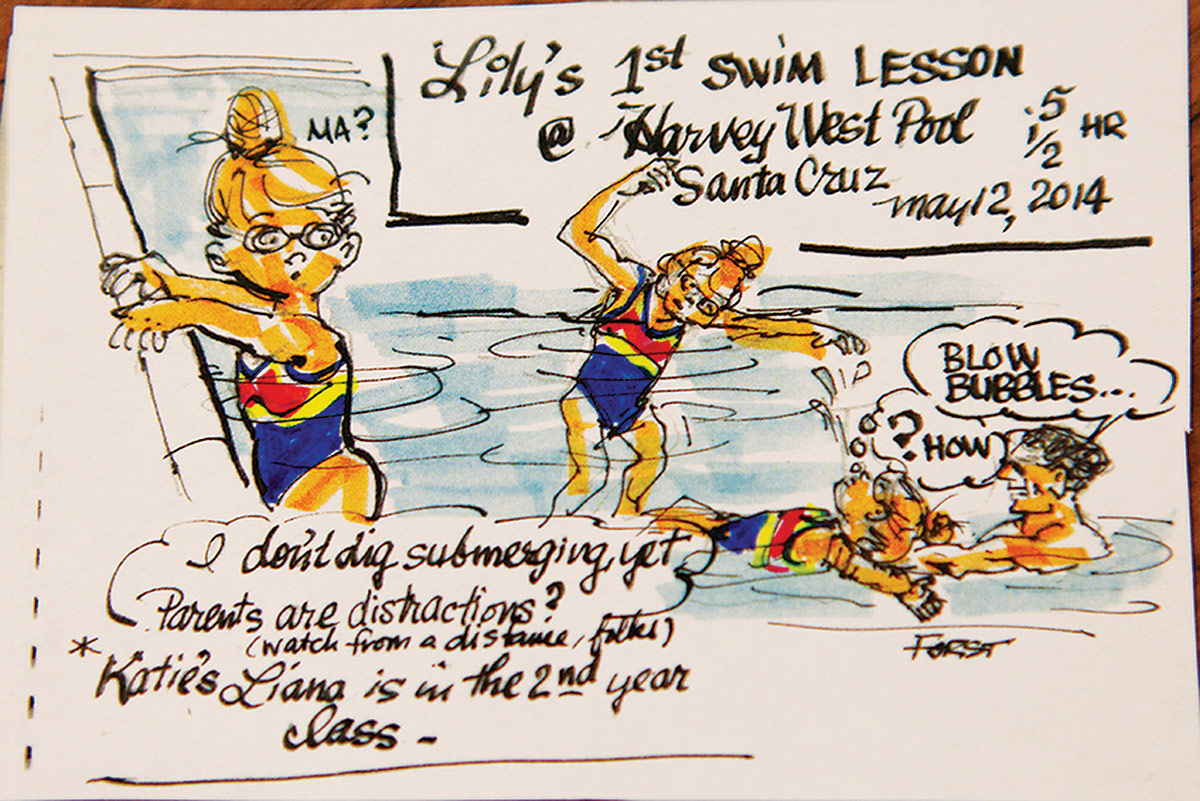 Lily's 1st SWIM LESSON
@ Harvey West Pool .5
1/2 HR
Santa Cruz
may 12, 2014
MA?
BLOW
BUBBLES...
? HOW
I don't dig submerging, yet
Parents are distractions?
(watch from a distance, folks)
* Katie's Liana is in the 2nd year
class -
FORST